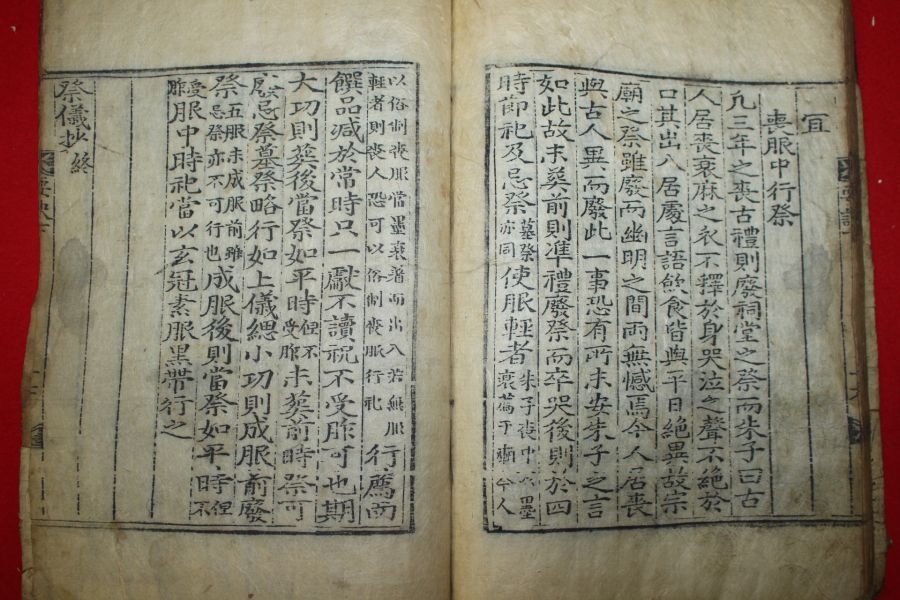 宜
喪服中行祭
凡三年之喪古禮則廢祠堂之祭而朱子曰古
人居喪衰麻之衣不釋於身哭泣之聲不絶於
口其出入居處言語飮食皆與平日絶異故宗
廟之祭雖廢而幽明之間兩無憾焉今人居喪
與古人異而廢此一事恐有所未安朱子之言
如此故未葬前則準禮廢祭而卒哭後則於四
時節祀及忌祭墓祭亦同使服輕者朱子喪中以墨衰薦于廟今人
以俗制喪服當墨衰著而出入若無服輕者則喪人恐可以俗制喪服行祀行薦而
饌品減於常時只一獻不讀祝不受胙可也期
大功則葬後當祭如平時但不受胙未葬前時祭可
廢忌祭墓祭略行如上儀緦小功則成服前廢
祭五服未成服前雖忌祭亦不可行也成服後則當祭如平時但不
受胙服中時祀當以玄冠素服黑帶行之
祭儀抄終